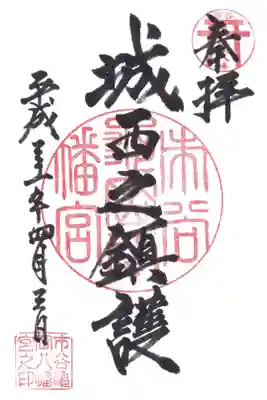 奉拝
城西之鎮護
平成三十年四月三日
市谷
幡宮
市谷亀
岡八幡
宮之印